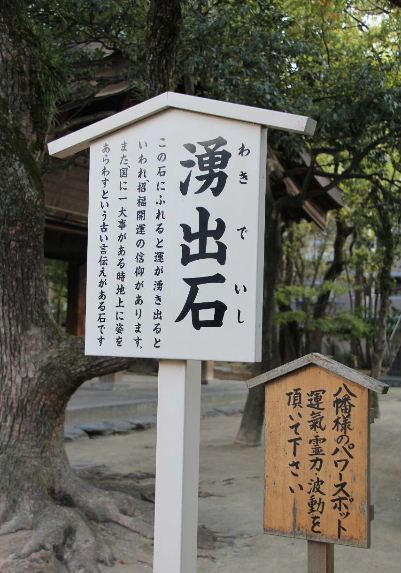 湧出石
わきでいし
この石にふれると運が湧き出ると
いわれ、招福開運の信仰があります。
また、国に一大事がある時地上に姿を
あらわすという古い言伝えがある石です
八幡様のパワースポット
運氣・霊力・波動を
頂いて下さい